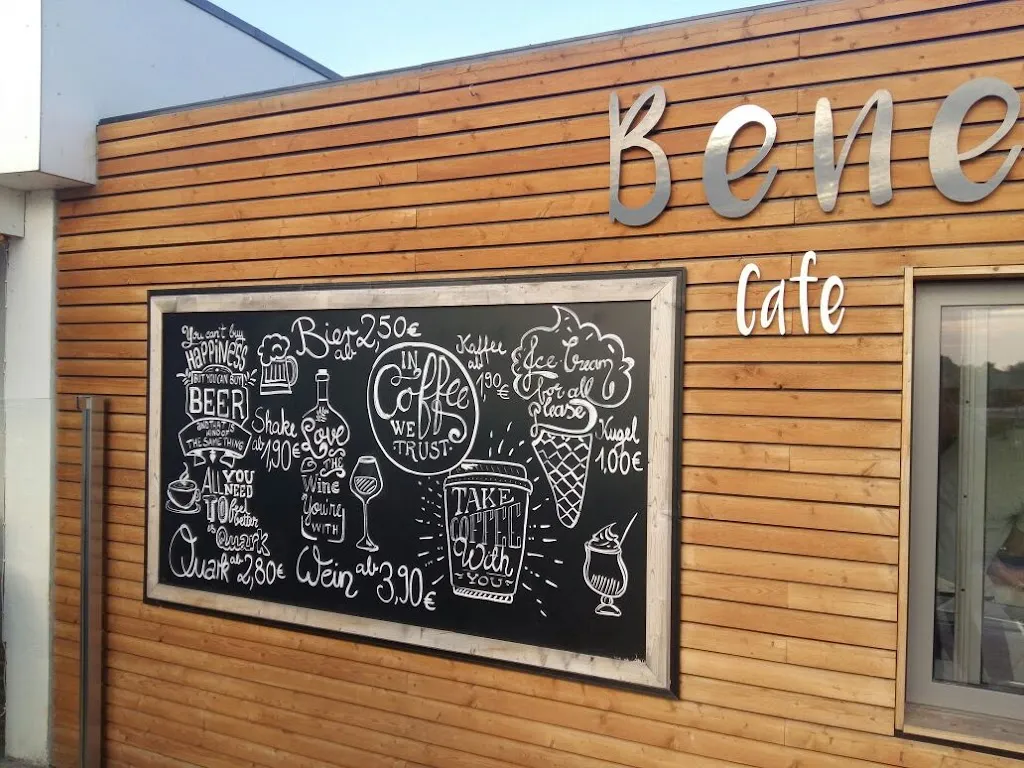 Bene
Cafe
You can't buy
HAPPINESS
BUT YOU CAN BUY
BEER
AND THAT'S
KIND OF
THE SAME THING
ALL YOU
NEED
TO feel
better
is
Quark
Quark ab 2,80€
Bier 2,50€
ab
Shake
ab 1,90€
Love
THE
Wine
You're
WITH
Wein ab 3,90€
IN
Coffee
WE
TRUST
Kaffee
ab
1,90€
TAKE
COFFEE
With
YOU
Ice-Cream
for all
Please
Kugel
1,00€